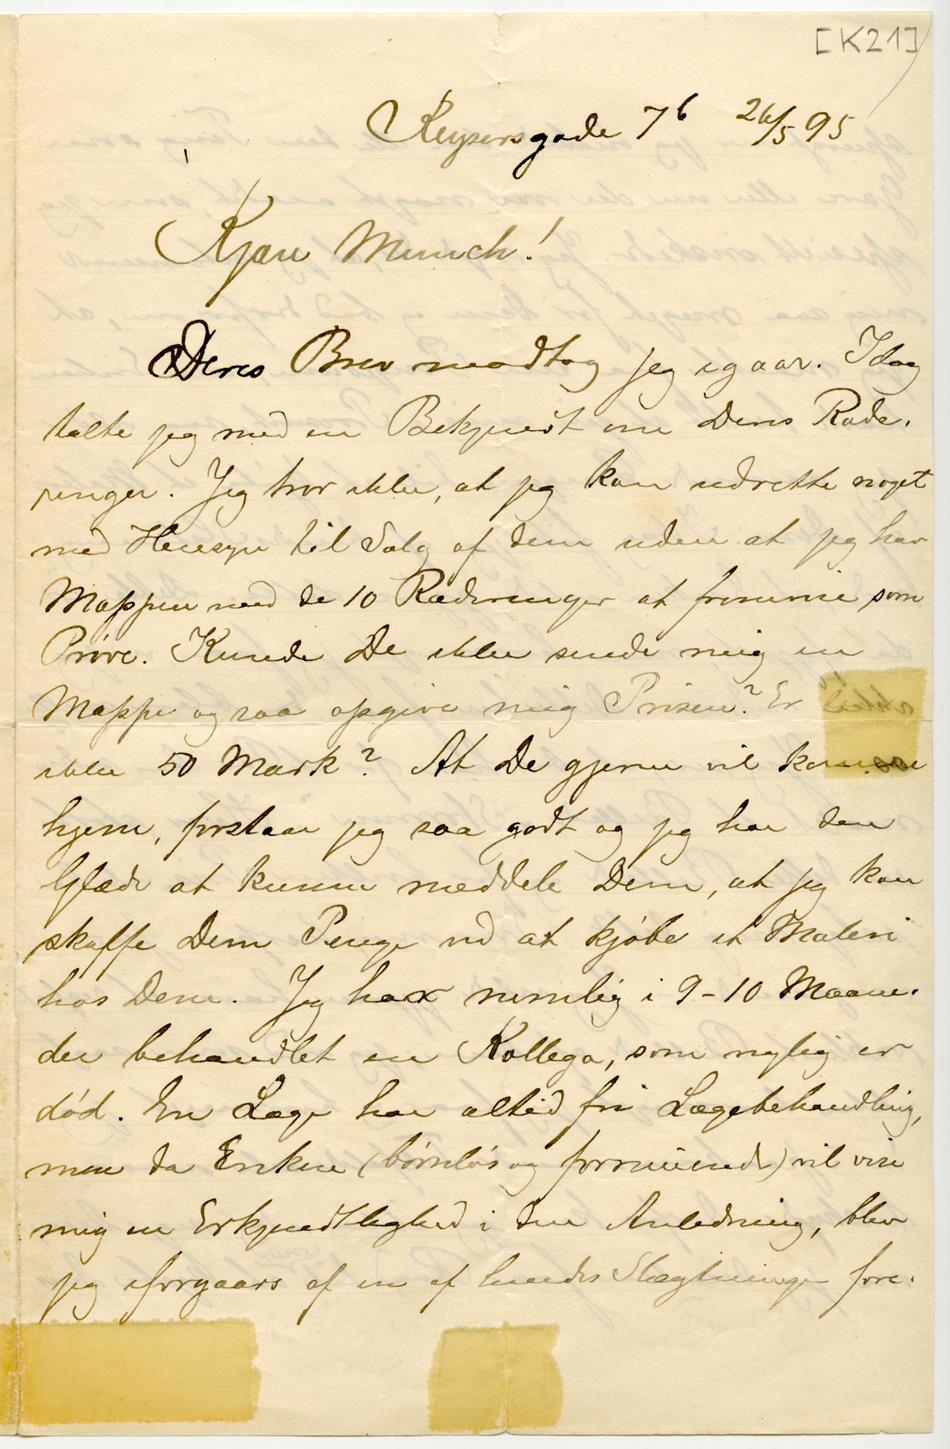 [K21]
Keysersgade 7b 26/5 95
Kjære Munch!
Deres Brev modtog jeg igaar. Idag
talte jeg med en Bekjendt om Deres Rade-
ringer. Jeg tror ikke, at jeg kan udrette noget
med Hensyn til Salg af dem uden at jeg har
Mappen med de 10 Raderinger at fremvise som
Prøve. Kunde De ikke sende mig en
Mappe og saa opgive mig Prisen? Er
ikke 50 Mark? At De gjerne vil komme
hjem, forstaar jeg saa godt og jeg har den
Glæde at kunne meddele Dem, at jeg kan
skaffe Dem Penge ved at kjøbe et Maleri
hos Dem. Jeg har nemlig i 9-10 Maane-
der behandlet en Kollega, som nylig er
død. En Læge har altid fri Lægebehandling,
men da Enken (børnløs og formuende) vil vise
mig en Erkjendtlighed i den Anledning, blev
jeg iforgaars af en af hendes Slægtninge fore-